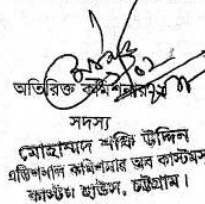 অতিরিক্ত কমিশনার
সদস্য
মোহাম্মদ শফি উদ্দিন
এডিশনাল কমিশনার অব কাস্টমস
কাস্টম হাউস, চট্টগ্রাম।